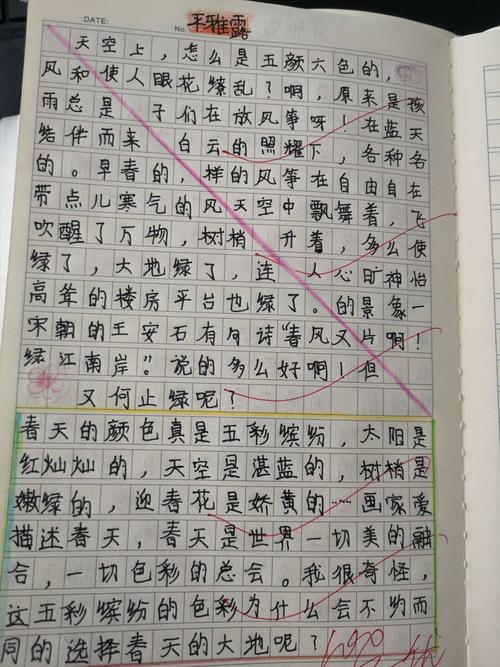 DATE:
No.
平雅露
天空上，怎么是五颜六色的，
使人眼花缭乱？啊，原来是孩
子们在放风筝呀！在蓝天
白云的照耀下，各种各
样的风筝在自由自在
天空中飘舞着，飞
升着，多么使
人心旷神怡
的景象一
片啊！
风和
雨总是
结伴而来
的。早春的，
带点儿寒气的风
吹醒了万物，树梢
绿了，大地绿了，连
高耸的楼房平台也绿了。
宋朝的王安石有句诗“春风又
绿江南岸”。说的多么好啊！但
又何止绿呢？
春天的颜色真是五彩缤纷，太阳是
红灿灿的，天空是湛蓝的，树梢是
嫩绿的，迎春花是娇黄的……画家爱
描述春天，春天是世界一切美的融
合，一切色彩的总会。我很奇怪，
这五彩缤纷的色彩为什么会不约而
同的选择春天的大地呢？